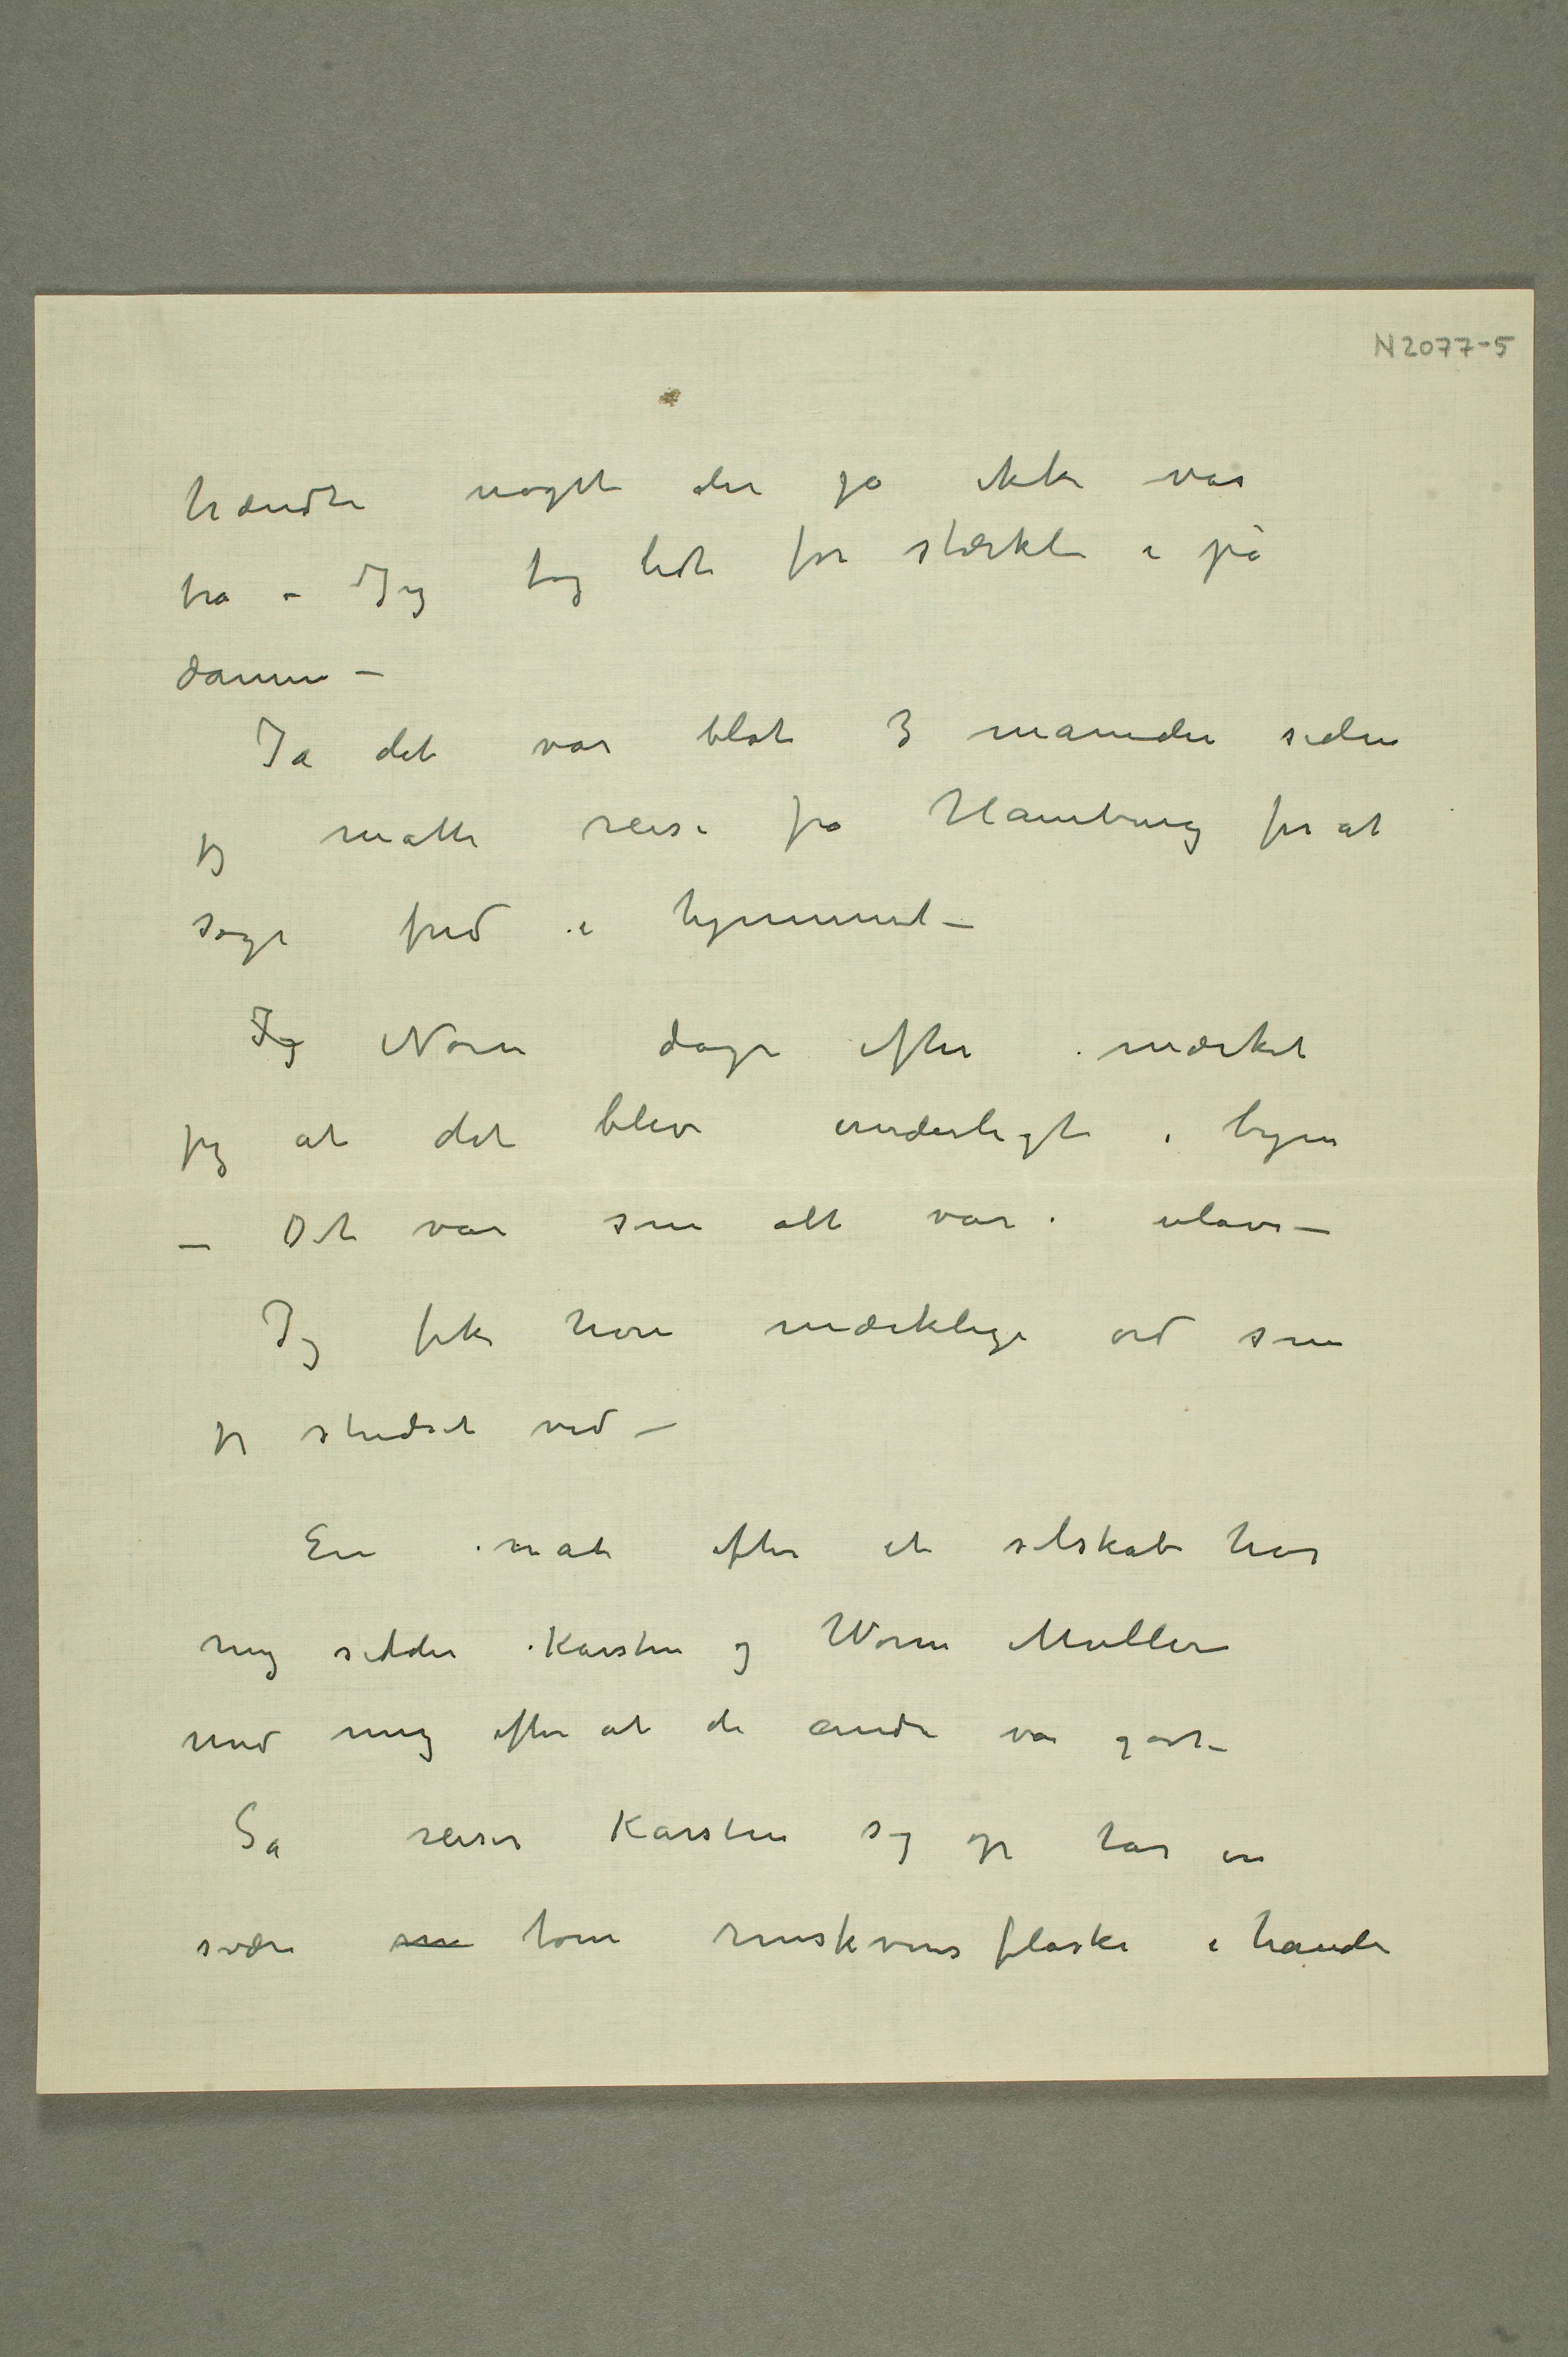 N2077-5
hændte noget der jo ikke var
bra – Jeg tog lidt for stærkt i på
damen –
Ja det var blot 3 maneder siden
jeg måtte reise fra Hamburg for at
søge fred i hjemmet –
Jeg Noen dage efter mærket
jeg at det blev underligt i byen
– Det var som alt var i ulave –
Jeg fik høre mærkelige ord som
jeg studset ved –
En nat efter et selskab hos
mig sidder Karsten og Worm Müller
med mig efter at de andre var gåt –
Så reiser Karsten sig op tar en
svær en tom rinskvins flaske i hånden